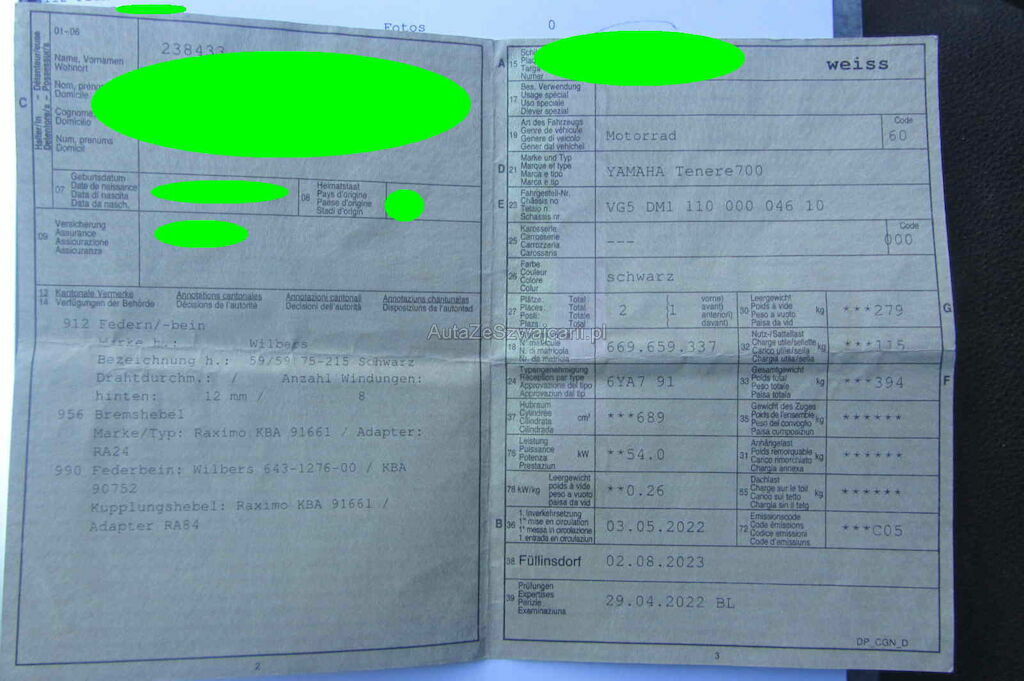 Fotos 0
01-06
238433
C
Halter/in - Détenteur/euse
Detentore/a - Possessur/a
Name, Vornamen
Wohnort
Nom, préno
Domicile
Cognome,
Domicilio
Num, prenums
Domicil
07 Geburtsdatum
Date de naissance
Data di nascita
Data da nasch.
08 Heimatstaat
Pays d'origine
Paese d'origine
Stadi d'origin
09 Versicherung
Assurance
Assicurazione
Assicuranza
13 Kantonale Vermerke Annotations cantonales Annotazioni cantonali Annotaziuns chantunalas
14 Verfügungen der Behörde Décisions de l'autorité Decisioni dell'autorità Disposiziuns da l'autoritad
912 Federn/-bein
Marke h.: Wilbers
Bezeichnung h.: 59/59175-215 Schwarz
Drahtdurchm.: / Anzahl Windungen:
hinten: 12 mm / 8
956 Bremshebel
Marke/Typ: Raximo KBA 91661 / Adapter:
RA24
990 Federbein: Wilbers 643-1276-00 / KBA
90752
Kupplungshebel: Raximo KBA 91661 /
Adapter RA84
2
A 15 Schil
Plaq
Targa
Numer
weiss
17 Bes. Verwendung
Usage spécial
Uso speciale
Diever spezial
19 Art des Fahrzeugs
Genre de véhicule
Genere di veicolo
Gener dal vehichel
Motorrad
Code
60
D 21 Marke und Typ
Marque et type
Marca e tipo
Marca e tip
YAMAHA Tenere700
E 23 Fahrgestell-Nr.
Châssis no
Telaio n.
Schassis nr.
VG5 DM1 110 000 046 10
25 Karosserie
Carrosserie
Carrozzeria
Carossaria
---
Code
000
26 Farbe
Couleur
Colore
Colur
schwarz
27 Plätze: Total vorne)
Places: Total avant)
Posti: Totale anteriori)
Plazs: Total davant)
2 (1
30 Leergewicht
Poids à vide
Peso a vuoto
Paisa da vid
kg
***279
G
AutaZeSzwajcarii.pl
18 N. matricule
N. di matricola
Nr. da matricla
669.659.337
32 Nutz-/Sattellast
Charge utile/sellette
Carico utile/sella
Chargia utila/sella
kg
***115
24 Typengenehmigung
Réception par type
Approvazione del tipo
Approvaziun dal tip
6YA7 91
33 Gesamtgewicht
Poids total
Peso totale
Paisa totala
kg
***394
F
37 Hubraum
Cylindrée
Cilindrata
Cilindrada
cm³
***689
35 Gewicht des Zuges
Poids de l'ensemble
Peso del convoglio
Paisa cumposiziun
kg
******
76 Leistung
Puissance
Potenza
Prestaziun
kW
**54.0
31 Anhängelast
Poids remorquable
Carico rimorchiato
Chargia annexa
kg
******
78 kW/kg Leergewicht
poids à vide
peso a vuoto
paisa da vid
**0.26
55 Dachlast
Charge sur le toit
Carico sul tetto
Chargia sin il tetg
kg
******
B 36 1. Inverkehrsetzung
1re mise en circulation
1a messa in circolazione
1. entrada en circulaziun
03.05.2022
72 Emissionscode
Code émissions
Codice emissioni
Code d'emissiuns
***C05
38 Füllinsdorf 02.08.2023
39 Prüfungen
Expertises
Perizie
Examinaziuns
29.04.2022 BL
DP_CGN_D
3